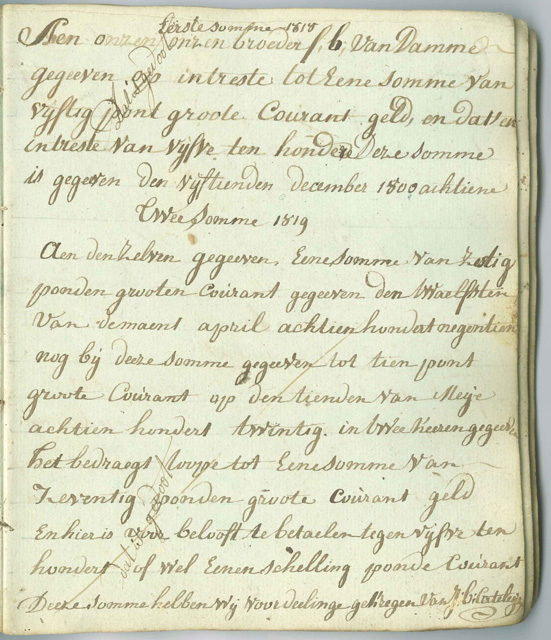 Eerste somme 1818
Aen onzen onzen broeder f. b. Van Damme
gegeeven op intreste tot Eene somme van
vijftig pont groote Courant geld, en dat en
intreste van vijfve ten honderd Deze somme
is gegeven den vijftienden december 1800 achtiene
twee somme 1819
Aen den zelven gegeeven, Eene somme van Zestig
ponden grooten Courant gegeeven den twaelfsten
van de maent april achtien hondert negentien
nog bij deeze somme gegeeven tot tien pont
groote Courant op den tienden van Meije
achtien hondert twintig. in twee keeren gegeeven
het bedraegt loope tot Eene somme van
Zeventig ponden groote Courant geld
En hier is voor belooft te betaelen tegen vijfve ten
hondert of wel Eenen schelling ponde Courant
Deeze somme hebben wij voor deelinge gekregen van
dat is gedoot